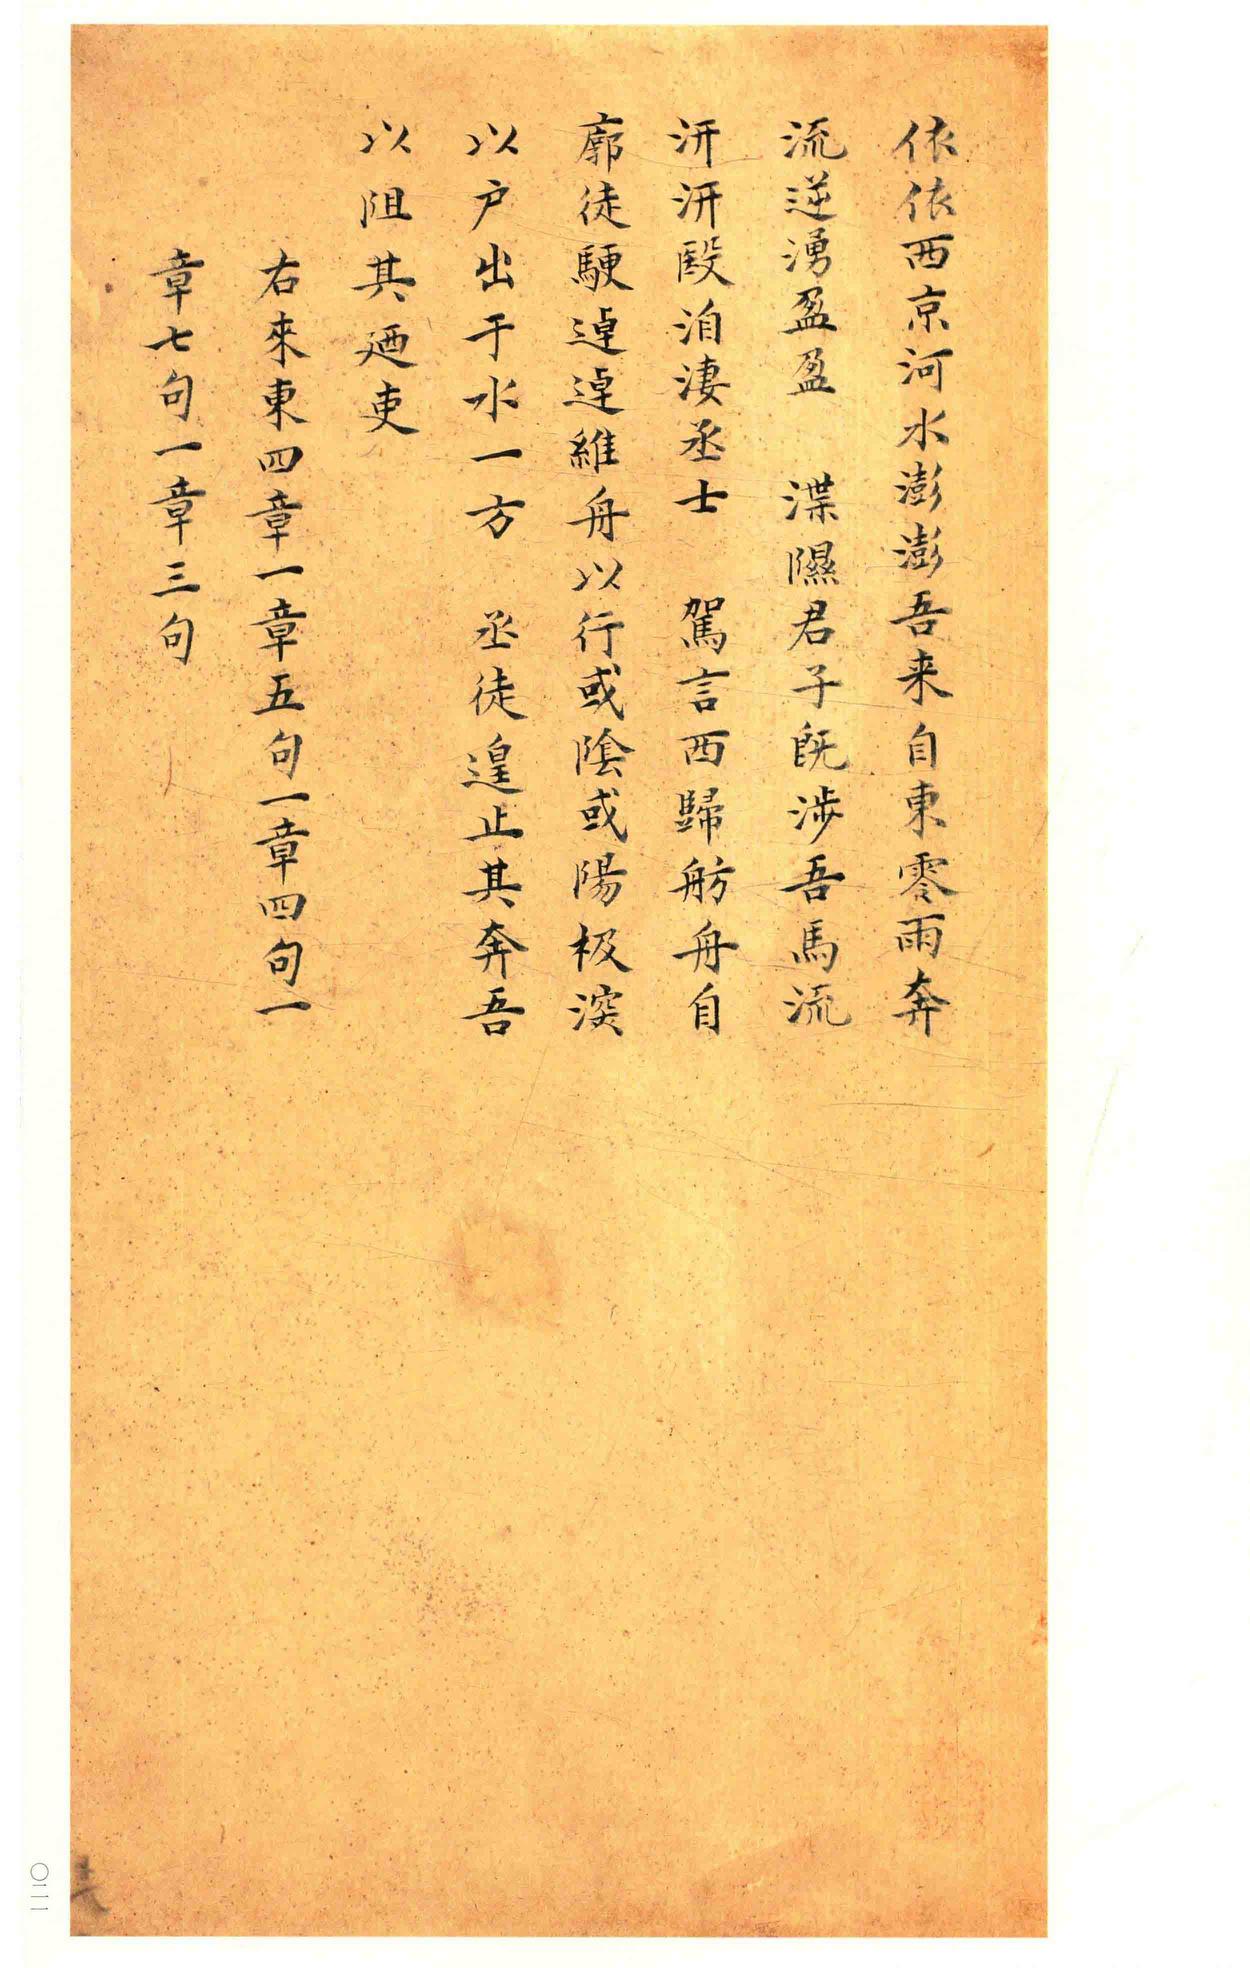 依依西京河水澎澎吾来自東零雨奔
流逆湧盈盈 渫隰君子既涉吾馬流
汧汧殹洎淒丞士 駕言西歸舫舟自
廓徒逴逴維舟以行或陰或陽极湥
以户出于水一方 丞徒遑止其奔吾
以阻其廼吏
右來東四章一章五句一章四句一
章七句一章三句
〇二一